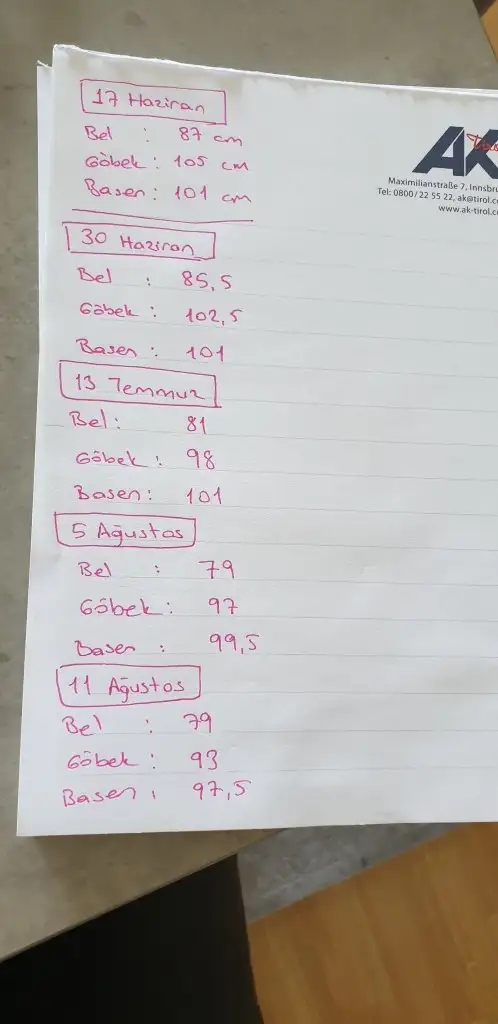 17 Haziran
Bel : 87 cm
Göbek : 105 cm
Basen : 101 cm
30 Haziran
Bel : 85,5
Göbek : 102,5
Basen : 101
13 Temmuz
Bel : 81
Göbek : 98
Basen : 101
5 Ağustos
Bel : 79
Göbek : 97
Basen : 99,5
11 Ağustos
Bel : 79
Göbek : 93
Basen : 97,5
AK
Maximilianstraße 7, Innsbru
Tel: 0800/22 55 22, ak@tirol.c
www.ak-tirol.c